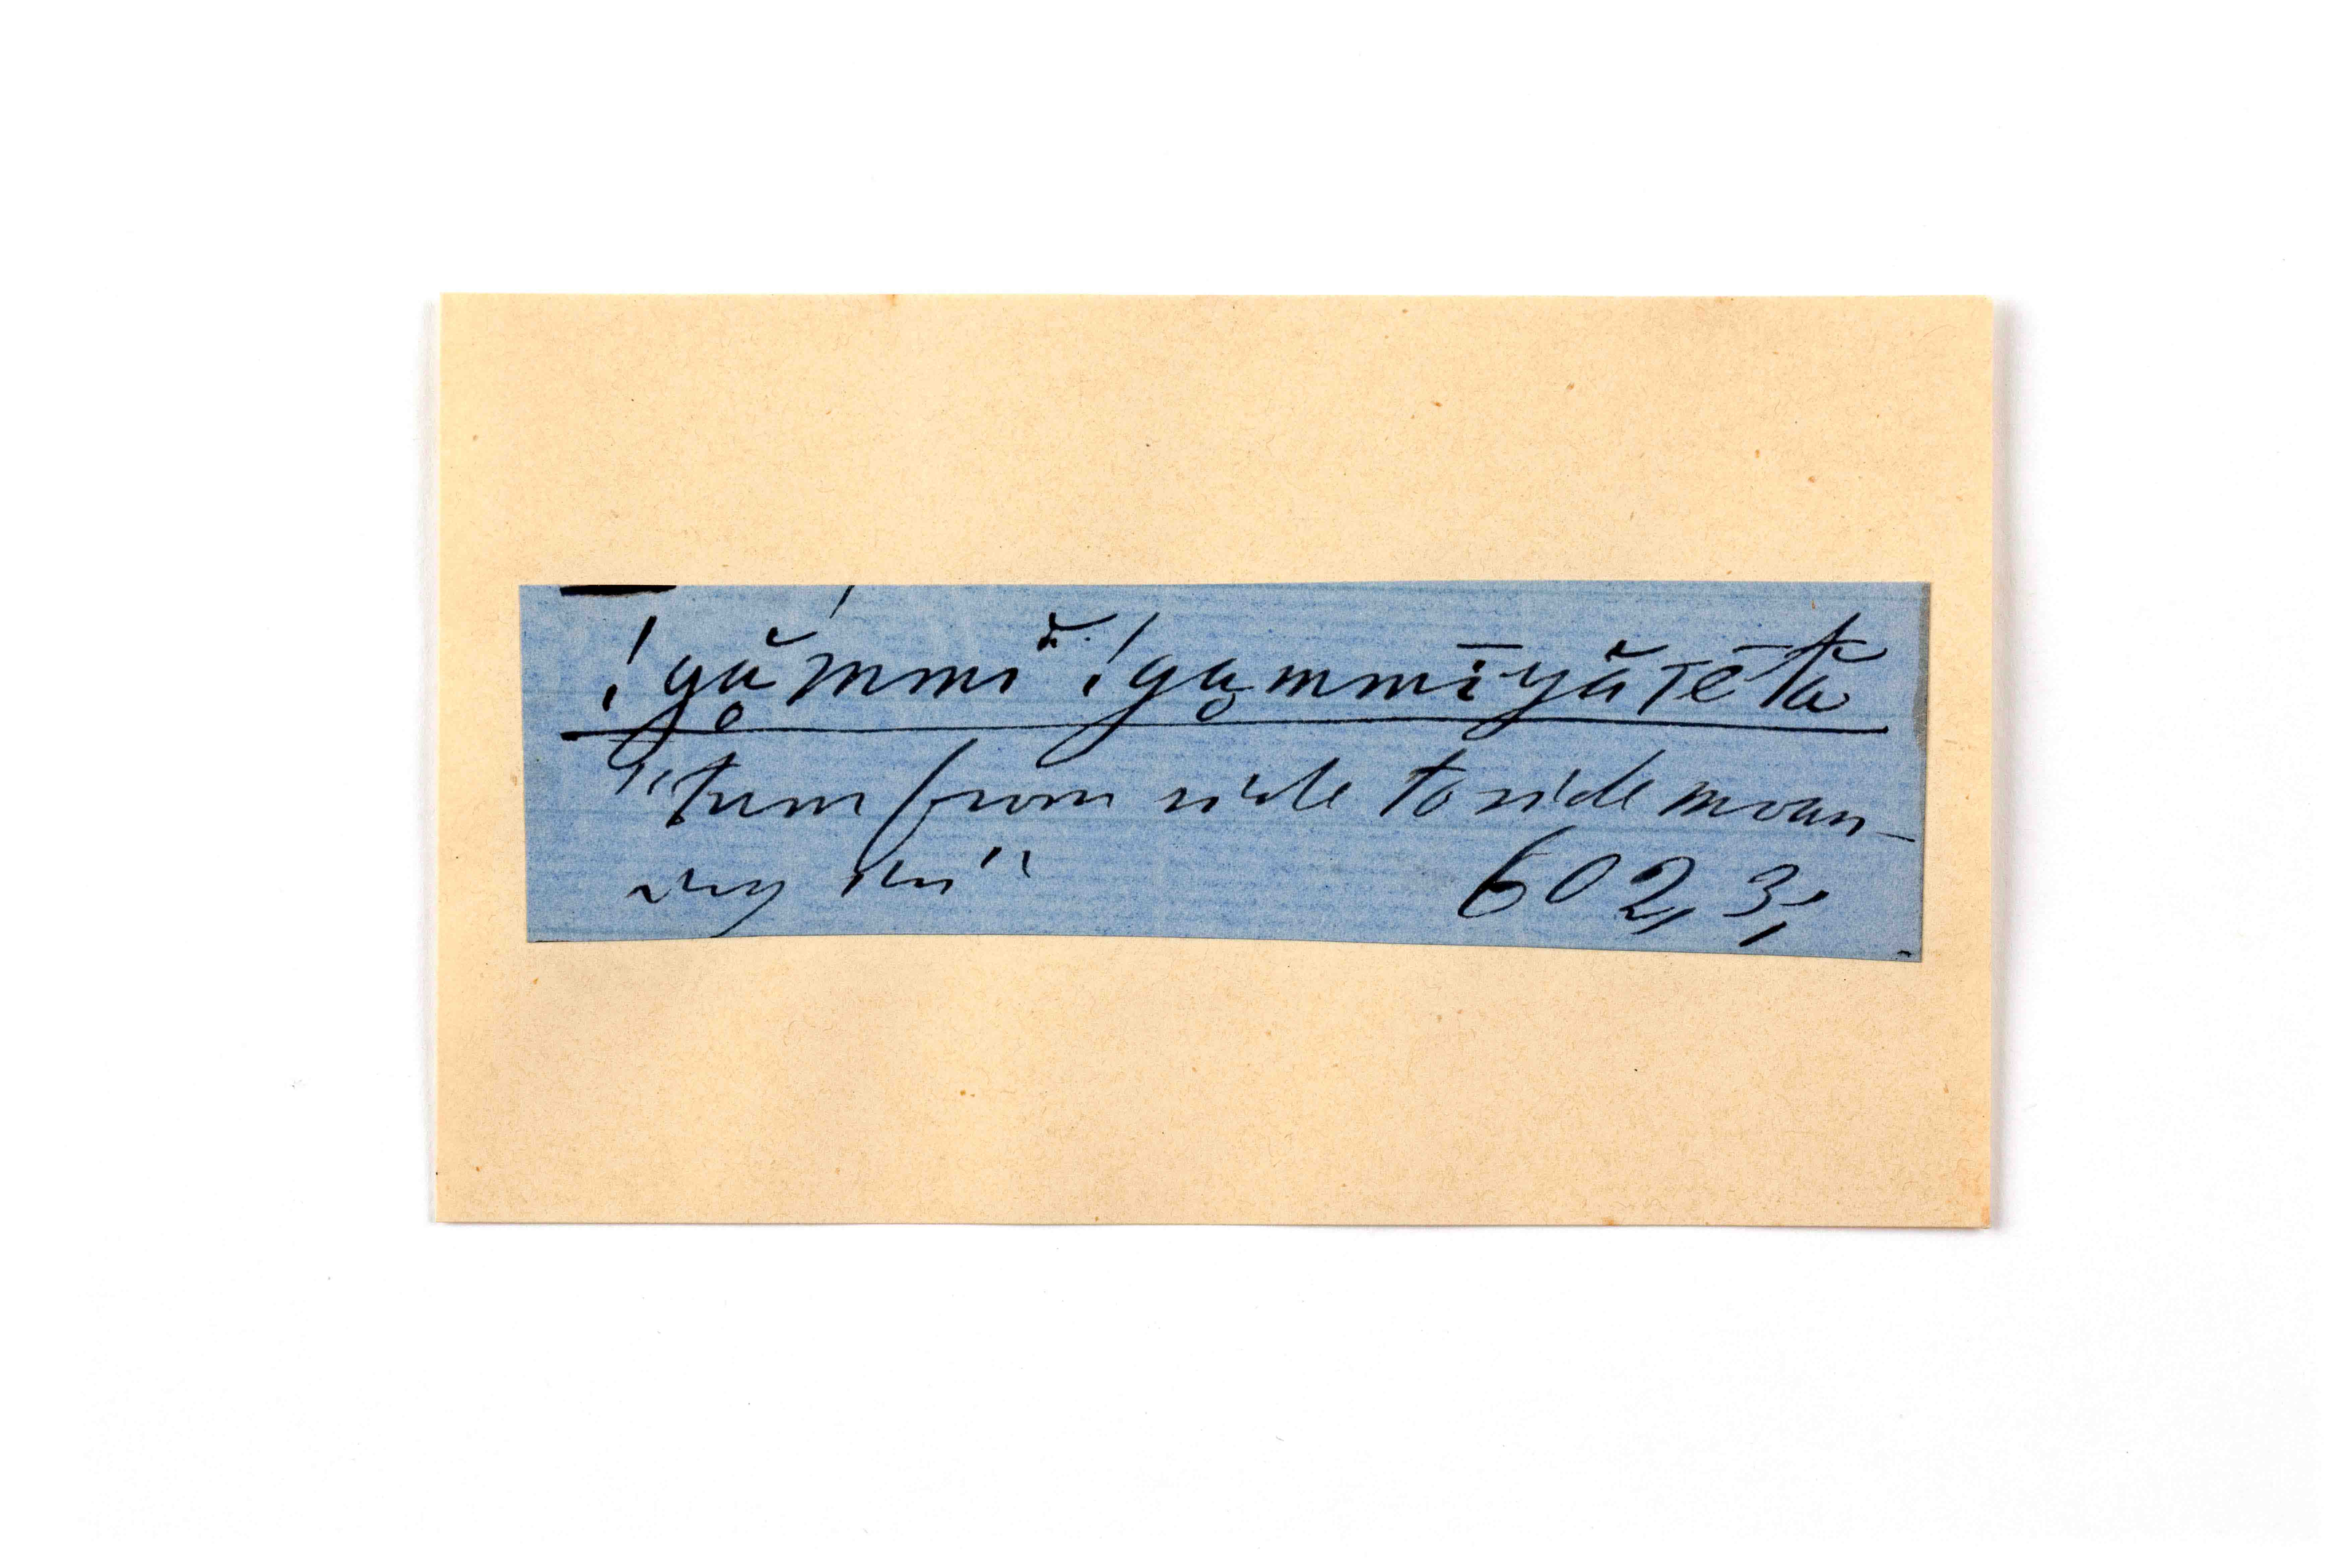 !gå̆mmĭ !gḁmmīyătētă
"turn from side to side moan-
ing
602, 3;